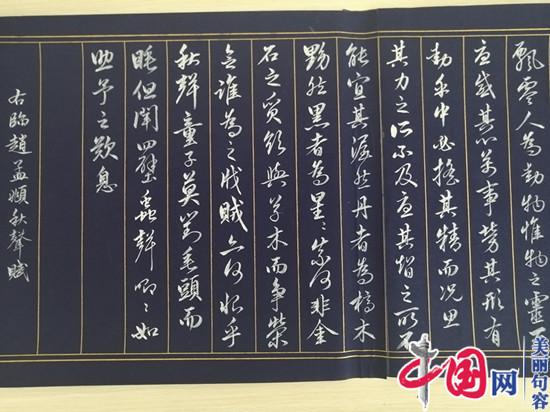 飄零人為動物惟物之靈百
憂感其心萬事勞其形有
動乎中必搖其精而況思
其力之所不及憂其智之所不
能宜其渥然丹者為槁木
黟然黑者為星々奈何非金
石之質欲與草木而爭榮
念誰為之戕賊亦何恨乎
秋聲童子莫對垂頭而
睡但聞四壁蟲聲唧々如
助予之歎息
右臨趙孟頫秋聲賦
中国网
美丽句容